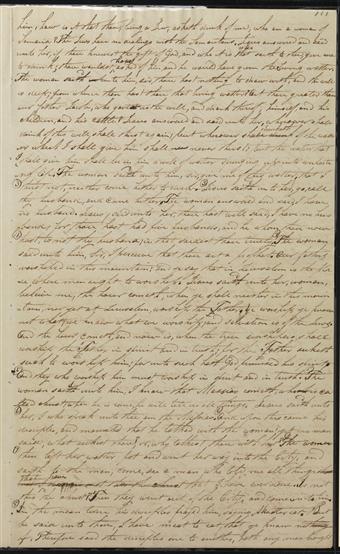 111
him, how is it that thou being a Jew, asketh drink of me, who am a woman of
Samaria? The Jews have no dealings with the Samaritans, Jesus answered and said
unto her, if thou knewest the gift of God, and who it is that saith to thee, give me
to drink, thou wouldest have asked of him, and he would have given thee living water.
The woman saith unto him, sir, thou hast nothing to draw with, and the well
is deep; from whence then hast thou that living water? Art thou greater than
our father Jacob, who gave us the well, and drank thereof, himself, and his
children, and his cattle? Jesus answered and said unto her, whosoever shall
drink of this well, shall thirst again; but whosoever shall drink of the water
which I shall give him, shall never thirst; but the water that
I shall give him shall be in him a well of water, springing up into everlasting
life, The woman saith unto him, sir, give me of this water, that I
thirst not, neither come hither to draw. Jesus saith unto her, go, call
thy husband, and come hither, The woman answered and said, I have
no husband. Jesus said unto her, thou hast well said, I have no hus
band, for thou hast had five husbands, and he whom thou now
hast, is not thy husband; in that saidest thou truly, The woman
said unto him, Sir, I perceive that thou art a prophet. Our fathers
worshiped in this mountain; and ye say that in Jerusalem is the pla
ce where men ought to worship. Jesus saith unto her, woman,
believe me, the hour cometh, when ye shall neither in this moun
tain, nor yet at Jerusalem, worship the Father, Ye worship ye know
not what; we know what we worship, and salvation is of the Jews.
And the hour cometh, and now is, when the true worshipers shall
worship the Father in spirit and in truth, for the Father seeketh
such to worship him; for unto such hath God promised his spirit,
And they who worship him must worship in spirit and in truth. The
woman saith unto him, I know that Messias cometh, who is ca
lled Christ, when he is come, he will tell us all things, Jesus saith unto
her, I who speak unto thee am the Messias. And upon this came his
disciples, and marveled that he talked with the woman; yet no man
said, what seekest thou? or, why talkest thou with her? The woman
then left her water pot and went her way into the City, and
saith to the men, come, see a man who told me all things
that I have ever done is not
this the Christ? Then they went out of the City, and came unto him
In the mean time his disciples prayed him, saying, Master, eat. But
he said unto them, I have meat to eat that ye know not
of, Therefore said the disciples one to another, hath any man brought